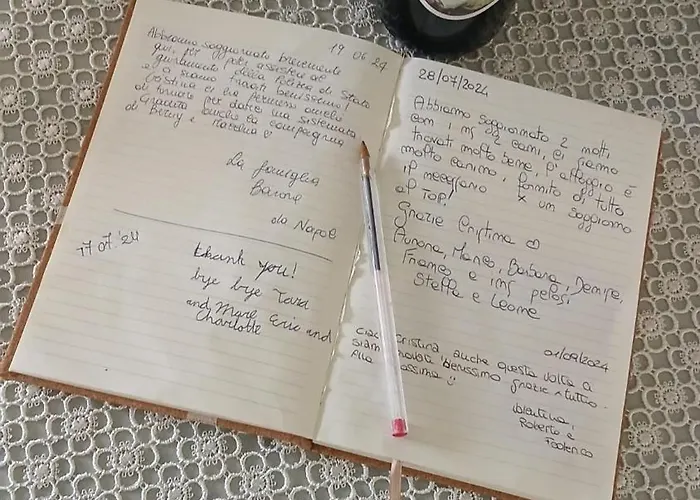 19 06 24
Abbiamo soggiornato brevemente
qui, per poter assistere al
giuramento della Polizia di Stato
e ci siamo trovati benissimo!
Cristina ci ha permesso anche
di tornare per darci una sistemata
di
Birny e
La famiglia
Barone
da Napoli
17 07 '24
thank you!
bye bye Tara
and Marc Eric and
Charlotte
28/07/2024
Abbiamo soggiornato 2 notti
con i ns 2 cani, ci siamo
trovati molto bene, l'alloggio è
molto carino, fornito di tutto
il necessario x un soggiorno
al TOP!
Grazie Cristina
Aurora, Marco, Barbara, Denise,
Franco e ims pelosi
Stella e Leone
01/09/2024
Ciao Cristina anche questa volta ci
siamo trovati benissimo grazie x tutto.
Alla prossima
Valentina,
Roberto e